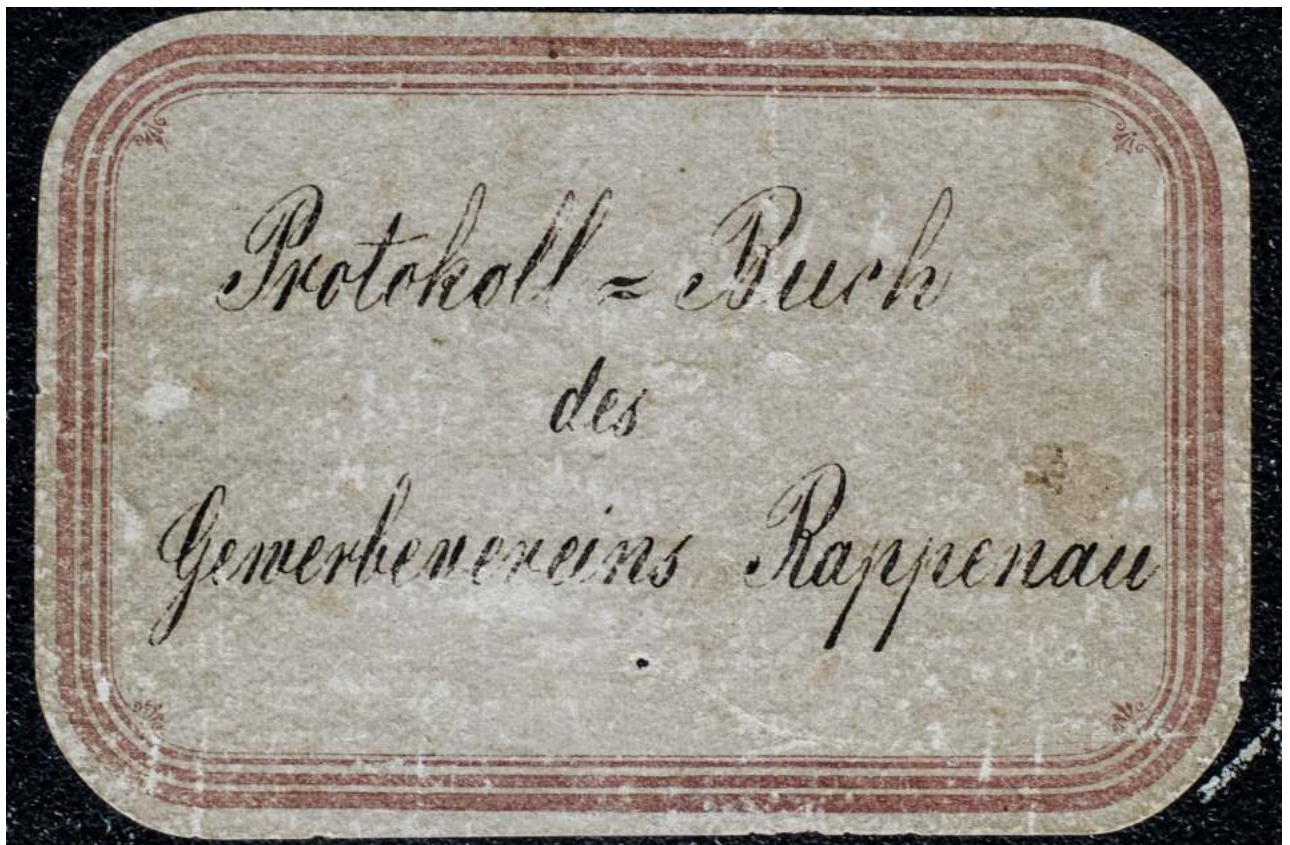 Protokoll = Buch
des
Gewerbevereins Rappenau